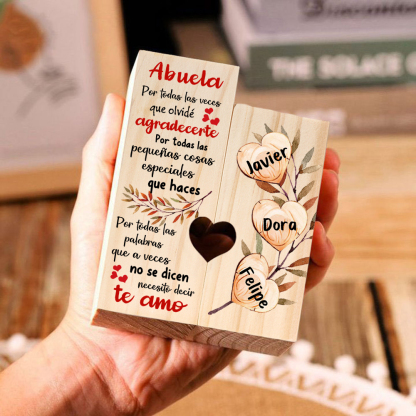 Abuela
Por todas las veces
que olvidé
agradecerte
Por todas las
pequeñas cosas
especiales
que haces
Por todas las
palabras
que a veces
no se dicen
necesito decir
te amo
Javier
Dora
Felipe
THE SOLACE O